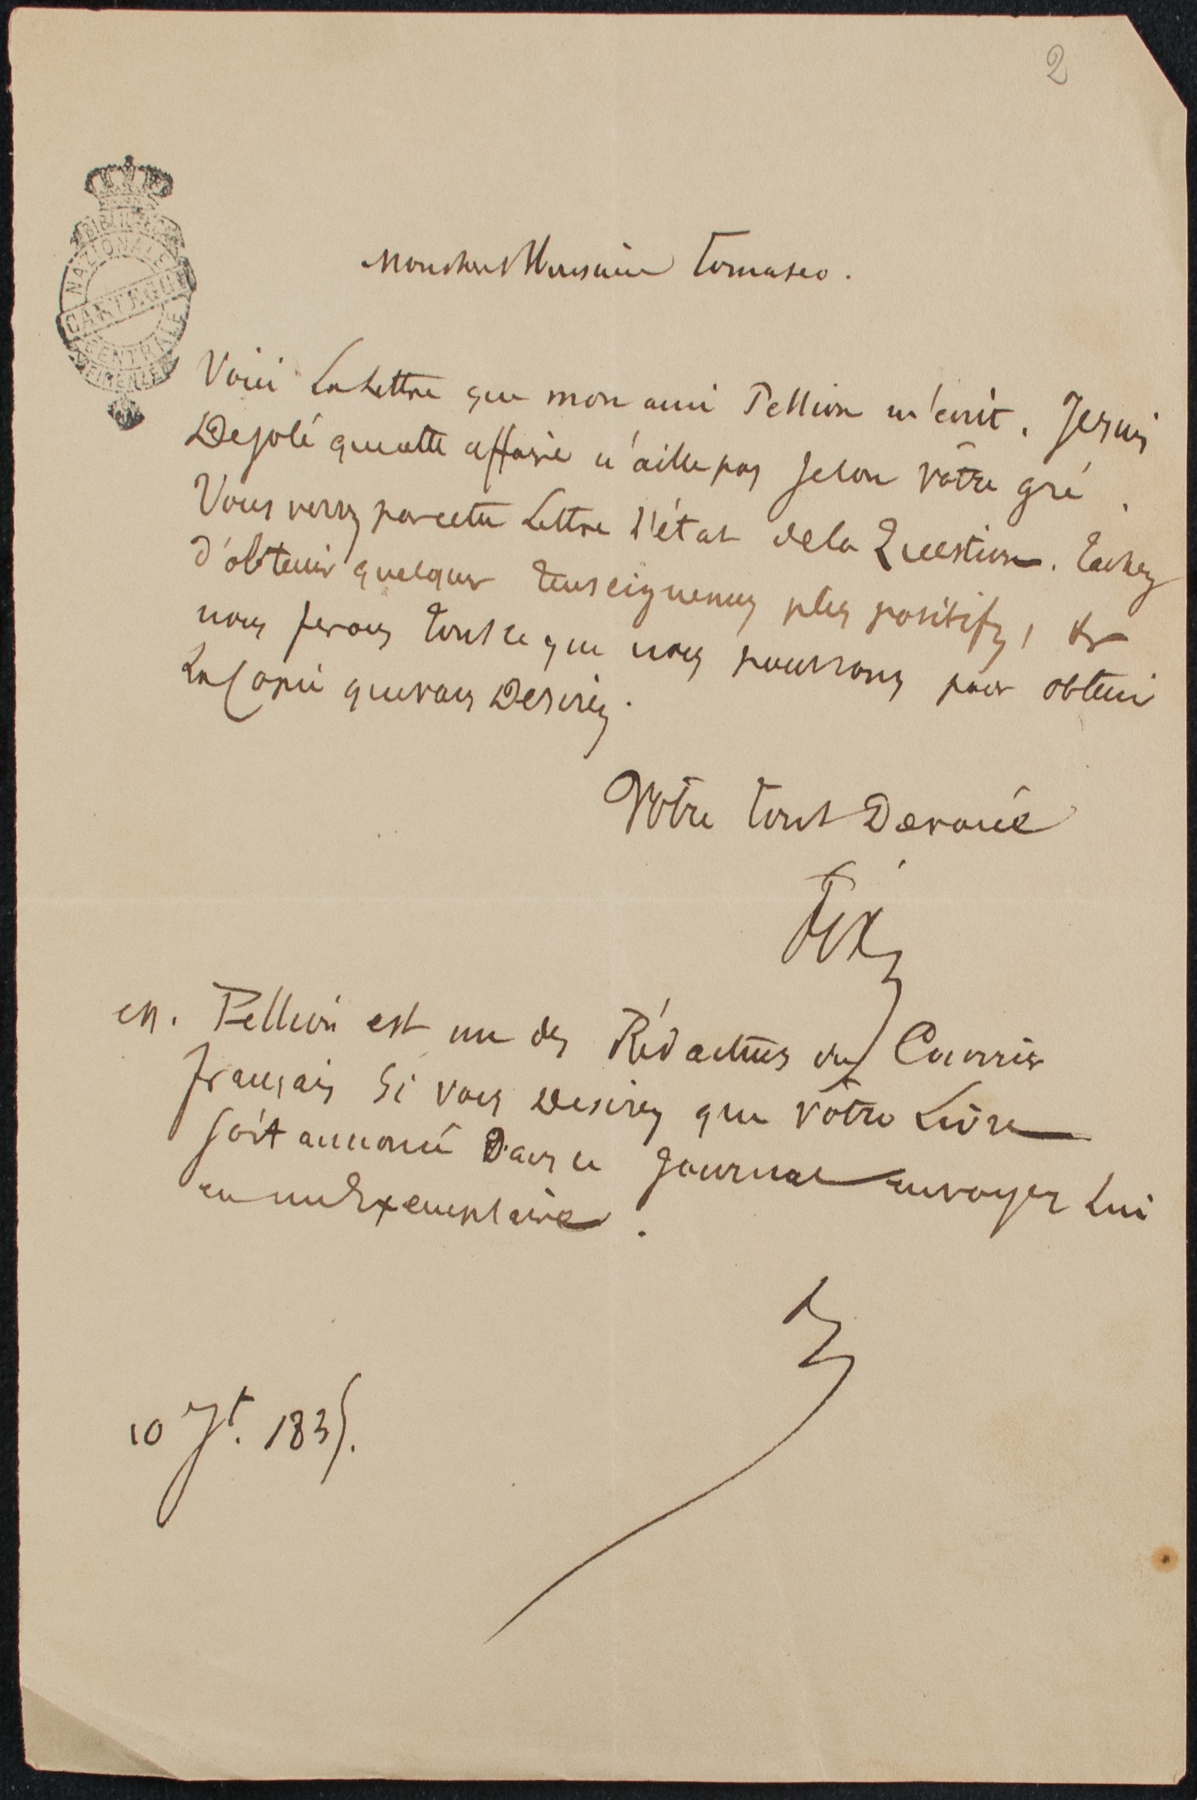 2
BIBLIOTECA
NAZIONALE
CARTEGGI
CENTRALE
FIRENZE
Mon cher Monsieur Tomaseo.
Voici La Lettre que mon ami Pellion m'écrit. Je suis
Desolé que cette affaire n'aille pas selon vôtre gré.
Vous verrez par cette Lettre l'état de la Question. Tachez
d'obtenir quelques renseignemens plus positifs, &
nous ferons tout ce que nous pourrons pour obtenir
La Copie que vous Desirez.
Votre tout Devoué
Pellion est un des Rédacteurs du Courrier
français Si vous Desirez que vôtre Livre
soit annoncé Dans ce Journal envoyez Lui
en un Exemplaire.
10 1835.